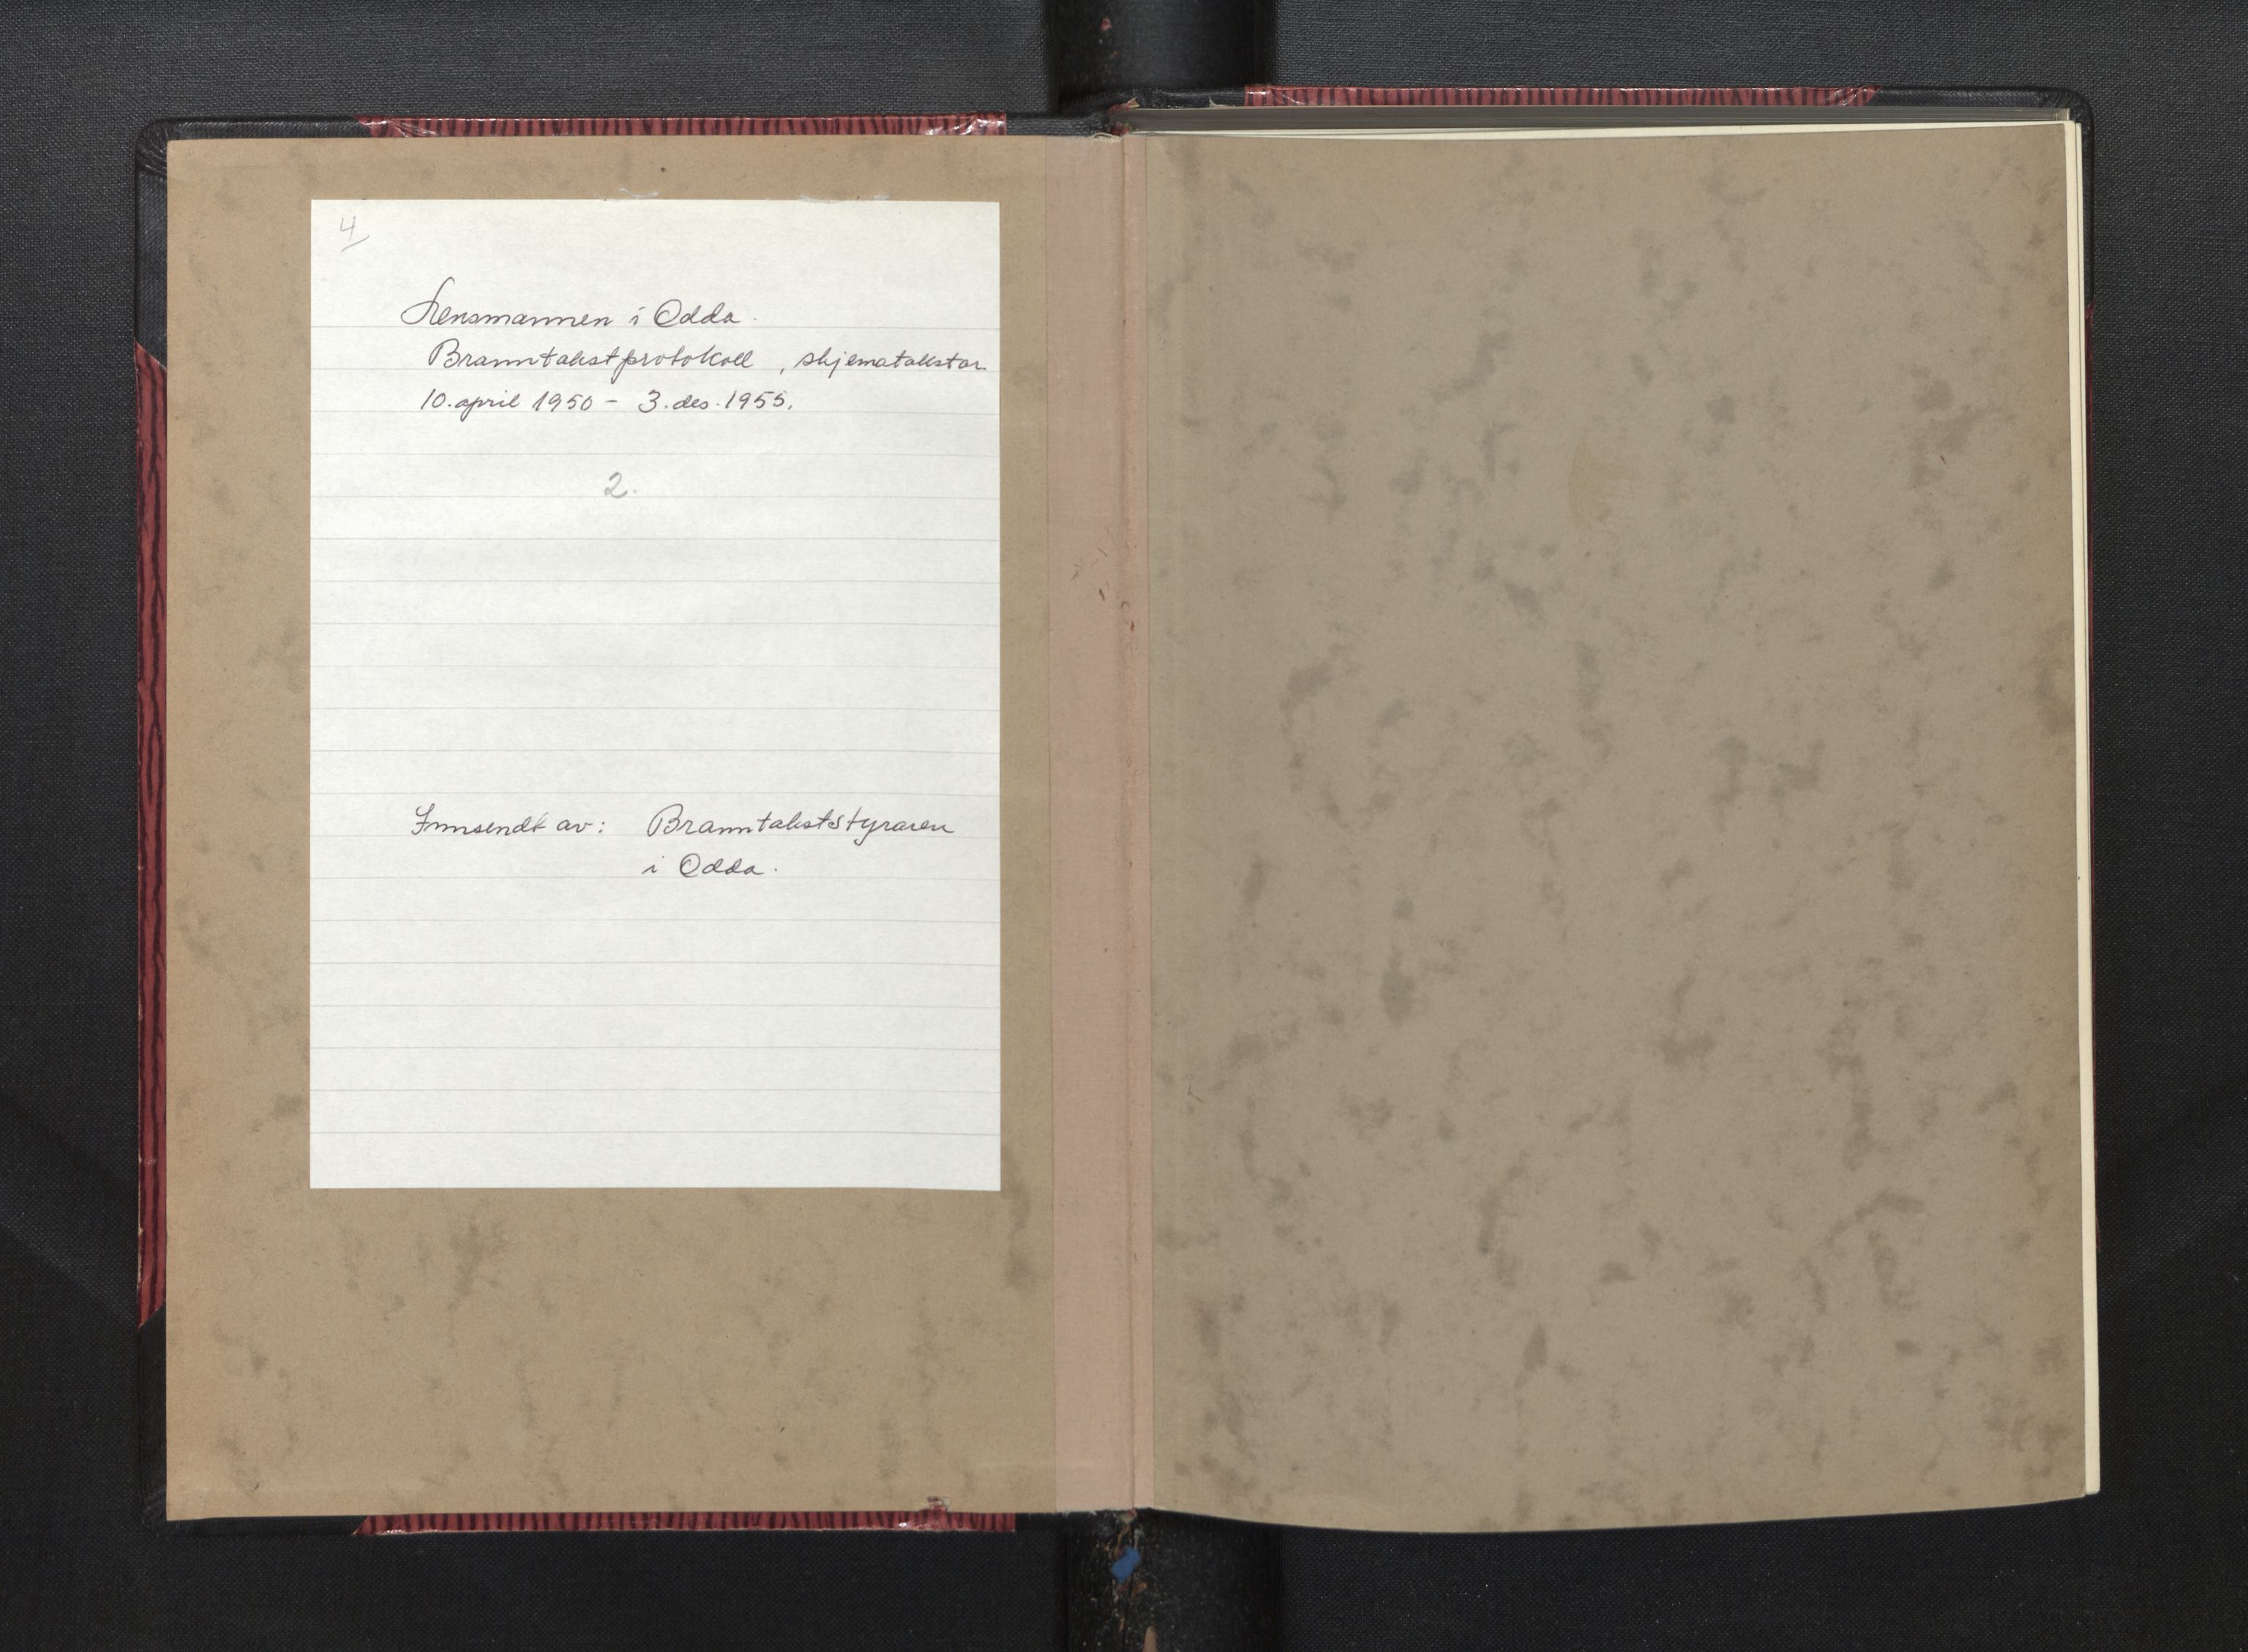 4
Lensmannen i Odda.
Branntakstprotokoll, skjematakstar.
10. april 1950 - 3. des. 1955.
2.
Innsendt av: Branntakststyraren
i Odda.